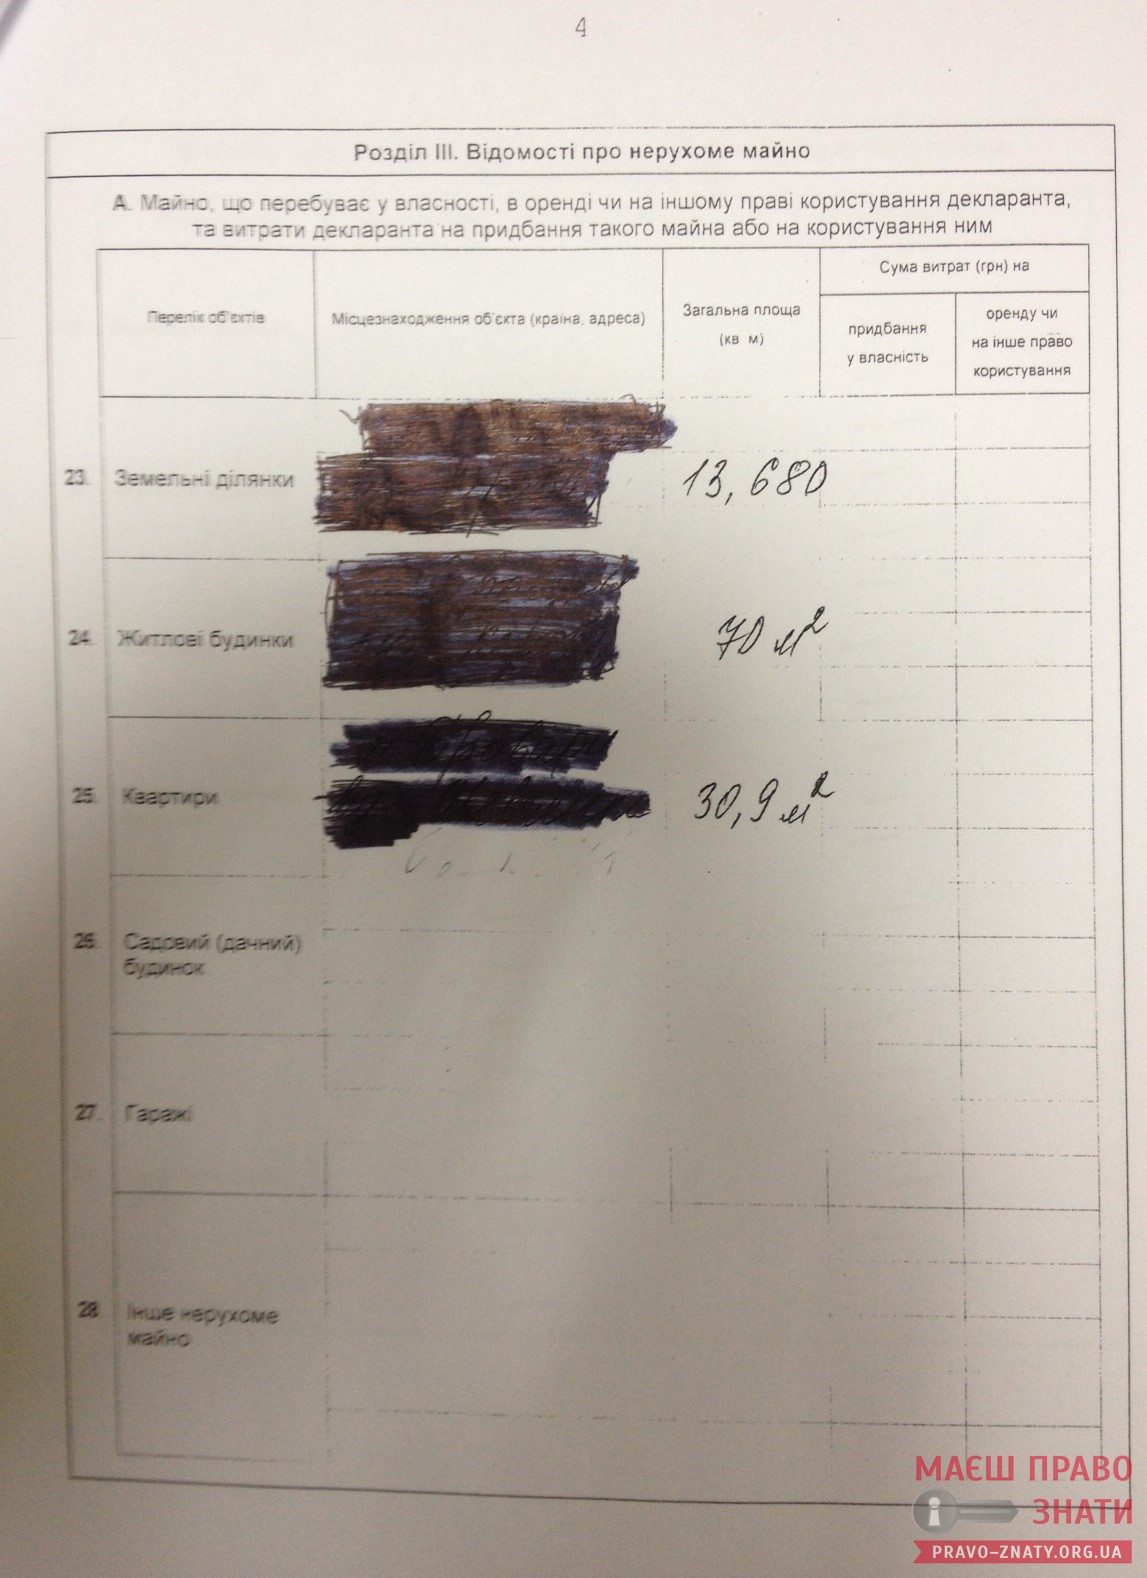 4
Розділ III. Відомості про нерухоме майно
А. Майно, що перебуває у власності, в оренді чи на іншому праві користування декларанта,
та витрати декларанта на придбання такого майна або на користування ним
Перелік об'єктів
Місцезнаходження об'єкта (країна, адреса)
Загальна площа
(кв. м)
Сума витрат (грн) на
придбання
у власність
оренду чи
на інше право
користування
23. Земельні ділянки 13,680
24. Житлові будинки 70 м²
25. Квартири 30,9 м²
26. Садовий (дачний)
будинок
27. Гаражі
28. Інше нерухоме
майно
МАЄШ ПРАВО
ЗНАТИ
PRAVO-ZNATY.ORG.UA